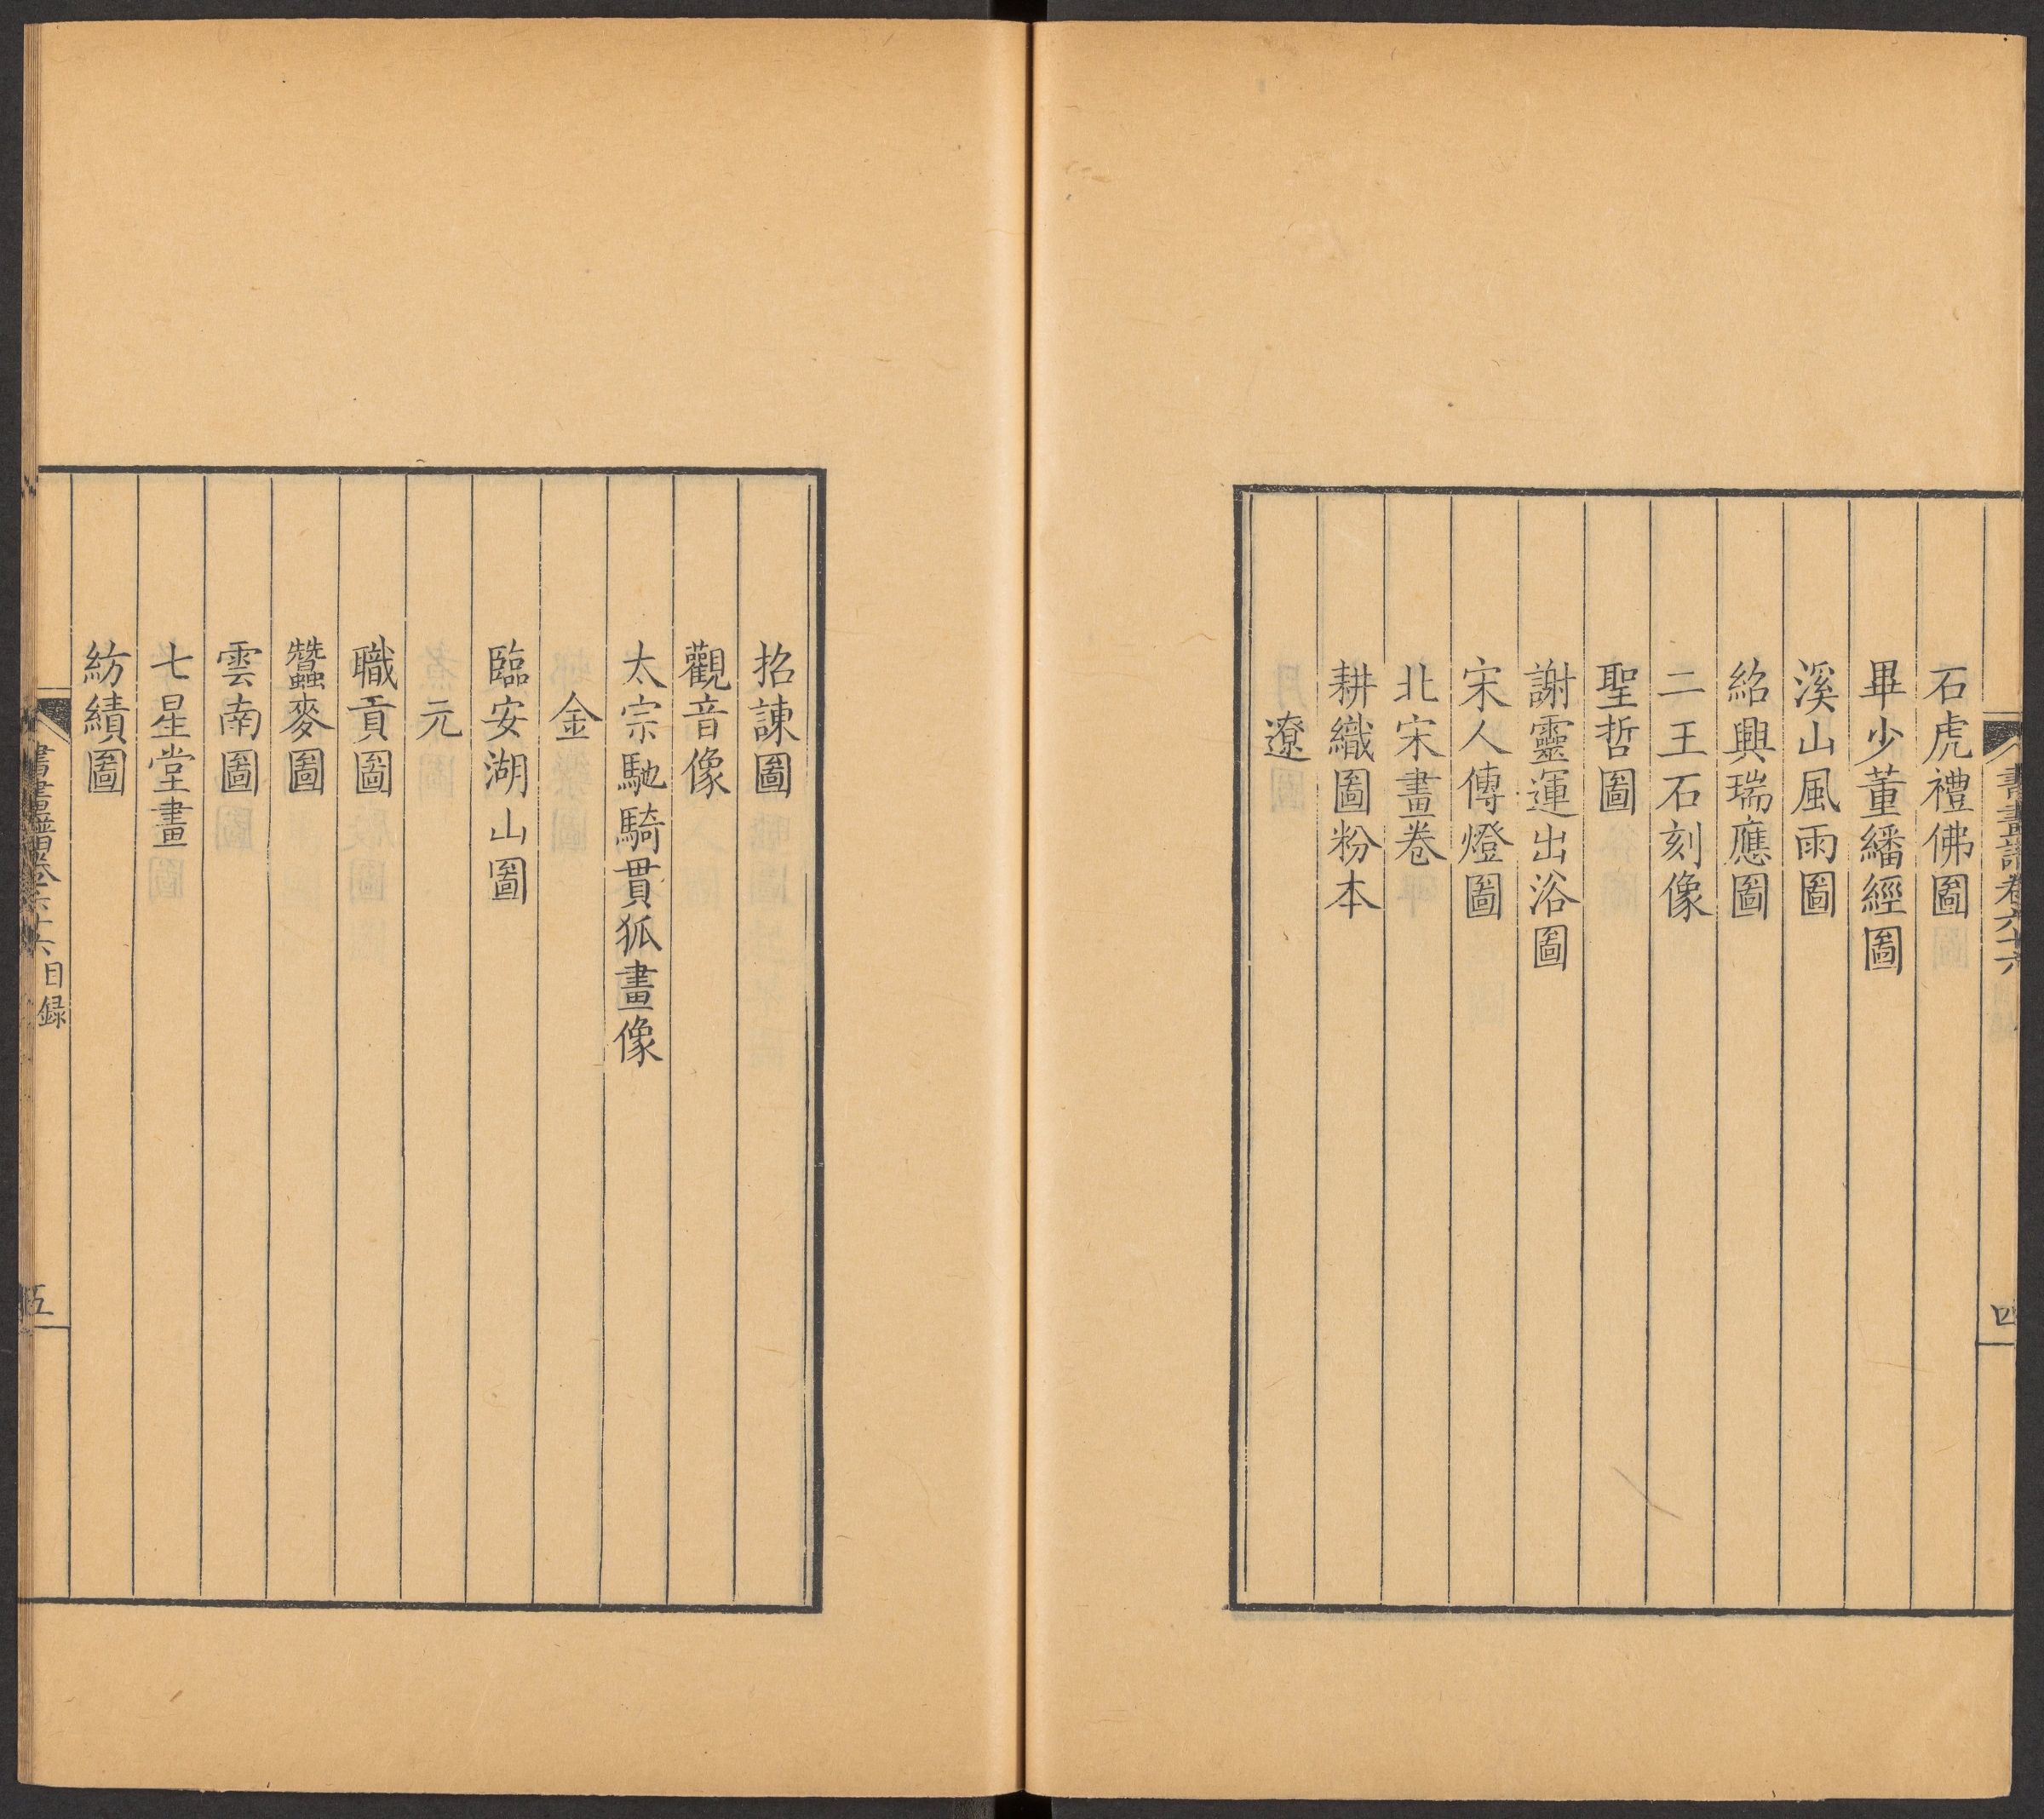 書畫譜卷六十六
四
石虎禮佛圖
畢少董繙經圖
溪山風雨圖
紹興瑞應圖
二王石刻像
聖哲圖
謝靈運出浴圖
宋人傳燈圖
北宋畫卷
耕織圖粉本
遼
招諫圖
觀音像
太宗馳騎貫狐畫像
金
臨安湖山圖
元
職貢圖
蠶麥圖
雲南圖
七星堂畫
紡績圖
書畫譜卷六十六目録
五